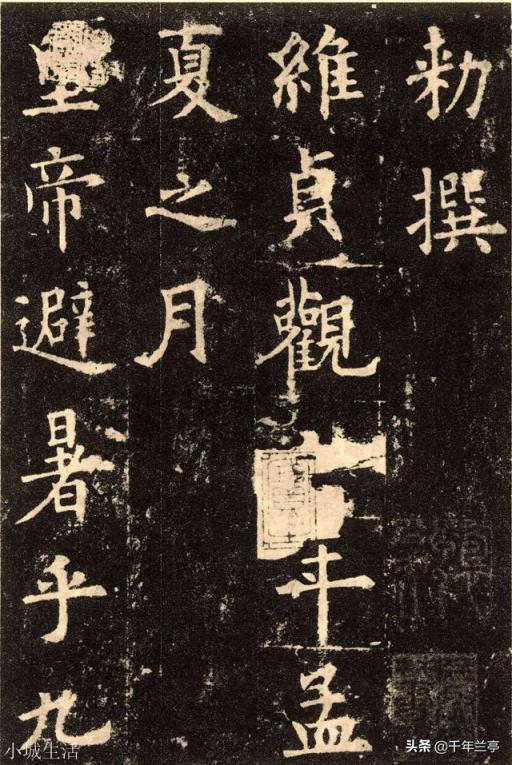 勑撰
維貞觀年孟
夏之月
皇帝避暑乎九
小城生活
头条 @千年兰亭